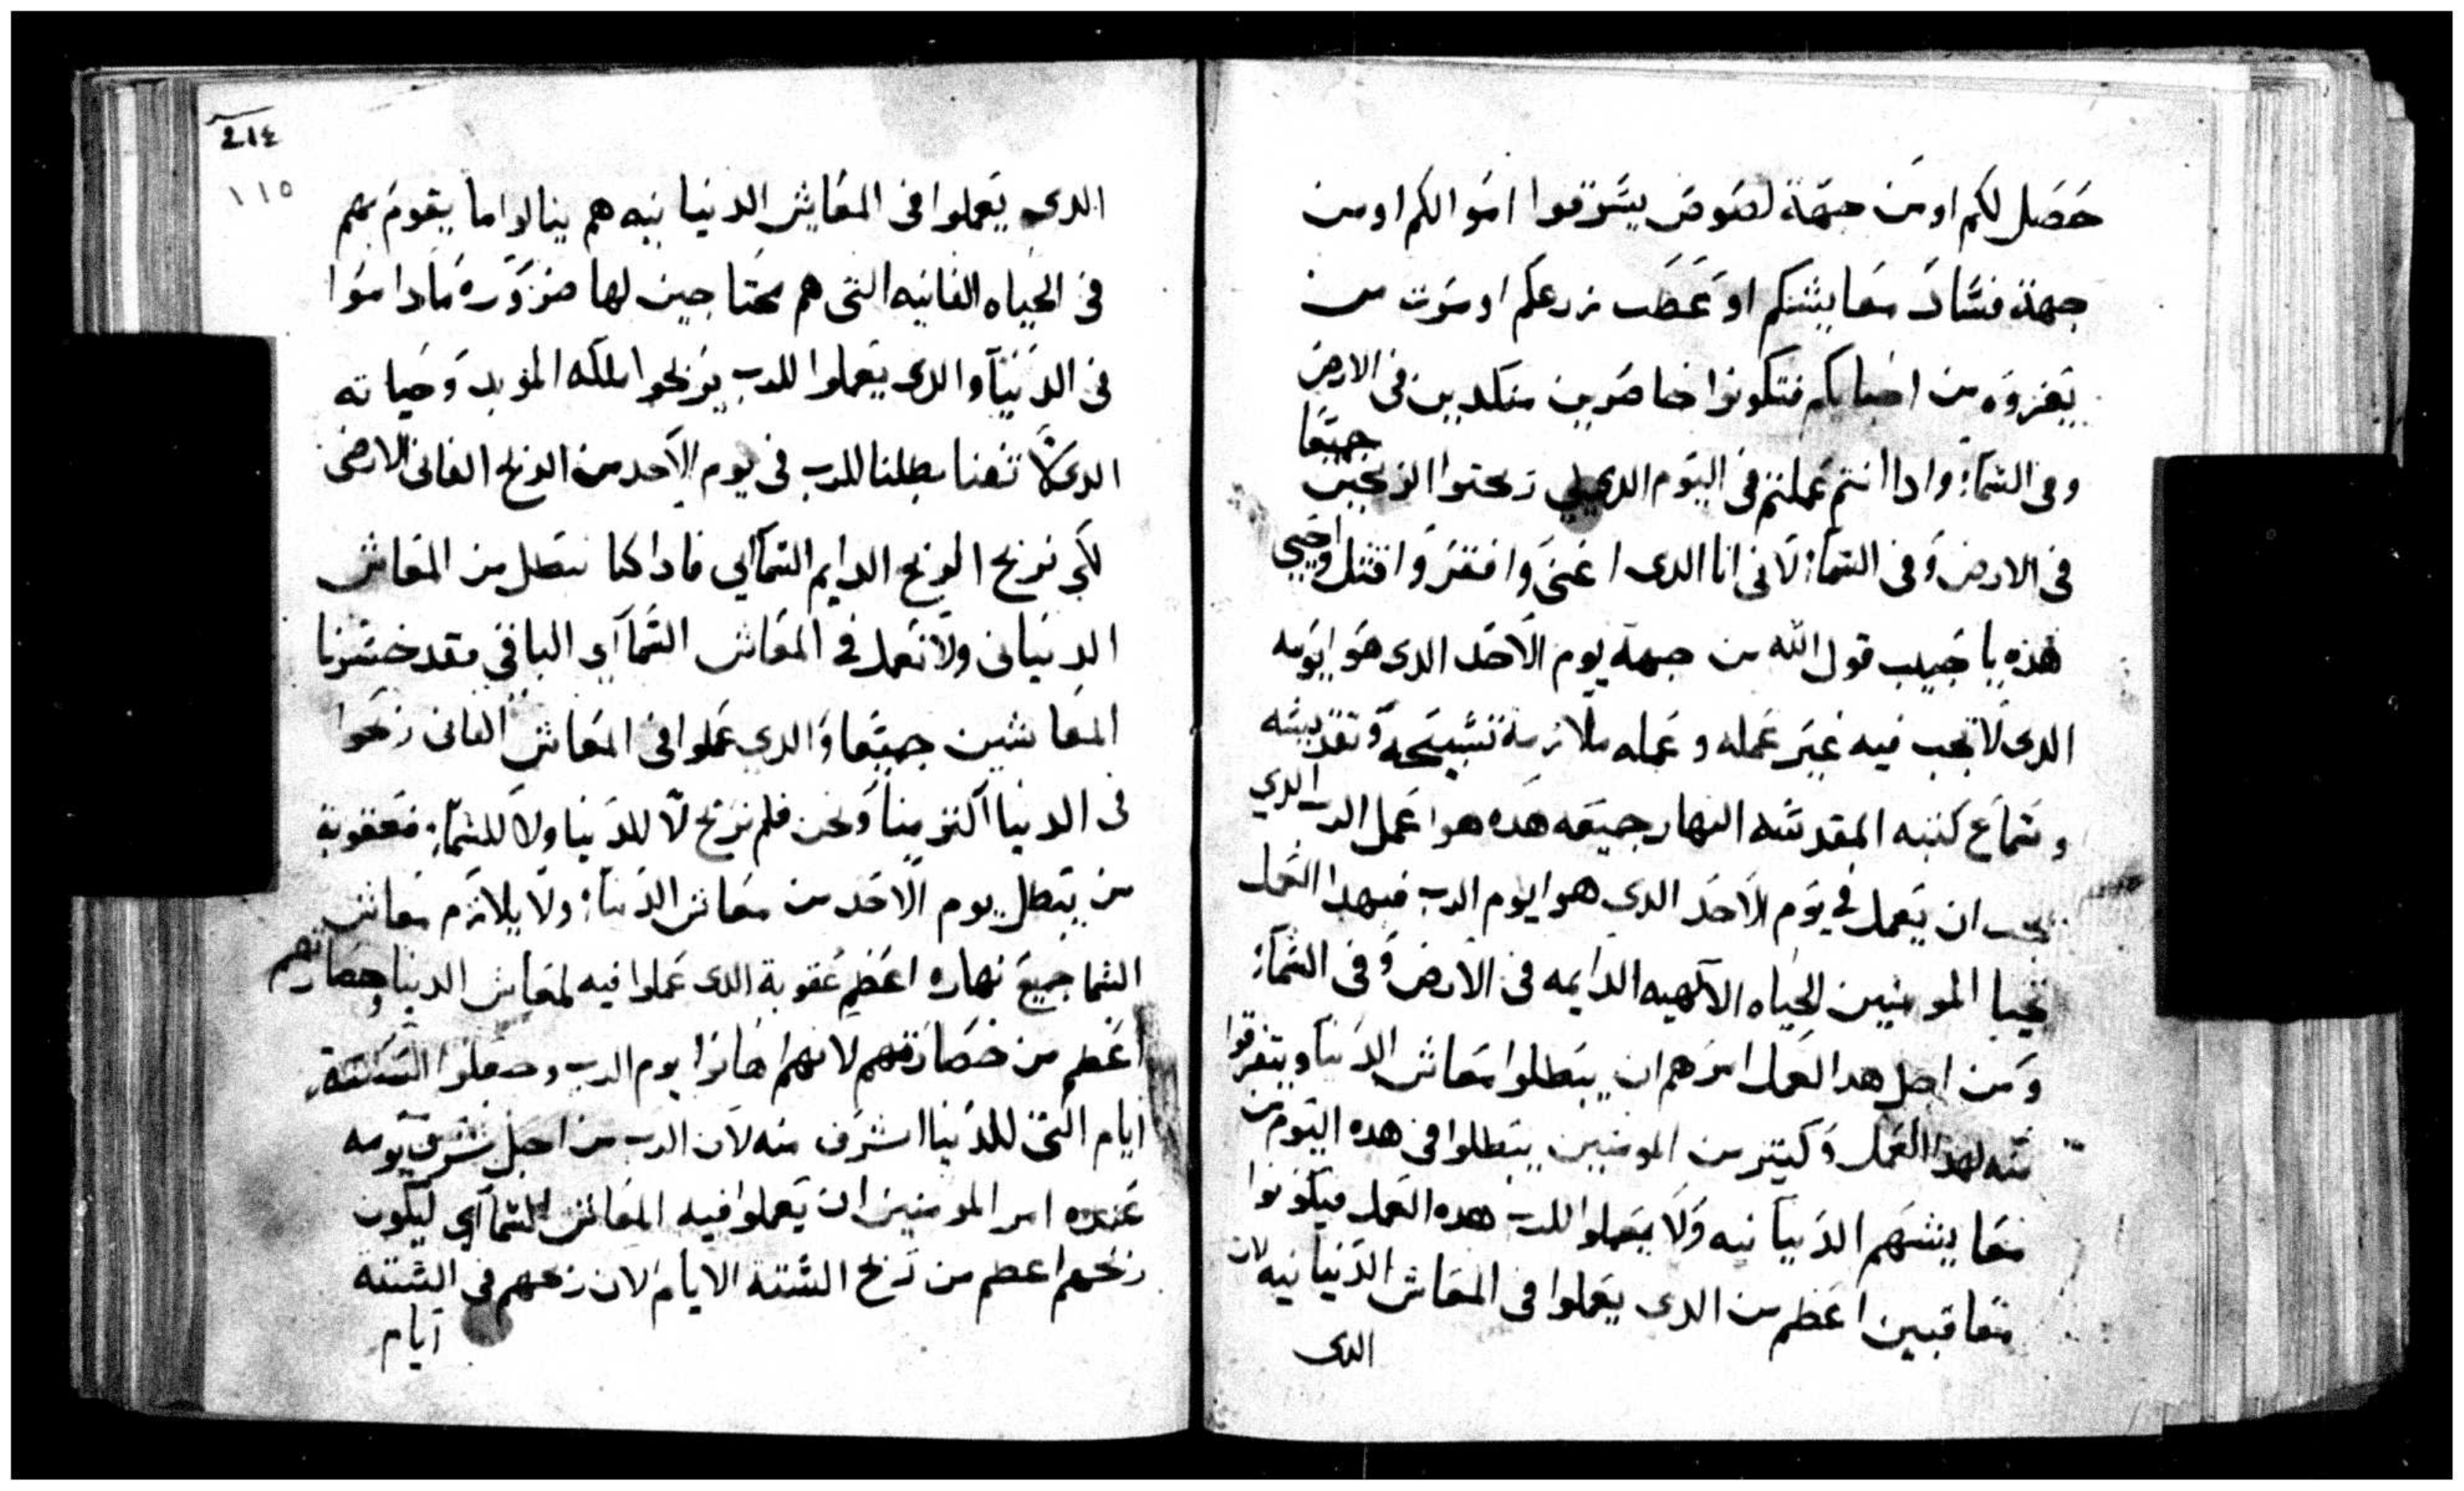 حصل لكم او من جهة لصوص يسرقوا اموالكم او من
جهة فساد معايشكم او عطب زرعكم او موت من
يعز وه من احبابكم فتكونوا خاصرين منكدين فى الارض
وفى السما وادا انتم عملتم فى اليوم الدى لي ربحتوا الربحين جميعا
فى الارض وفى السما لانى انا الدى اغنى وافقر واقتل واحيي
هده يا حبيب قول الله من جهة يوم الاحد الدى هو ايومه
الدى لا تجب فيه غير عمله وعمله ملازمة تسبيحه وتقديسه
وسماع كتبه المقدسه النهار جميعه هده هوا عمل الرب الدي
يجب ان يعمل في يوم الاحد الدي هوا يوم الرب فبهدا العمل
تحيا المومنين الحياه الالهيه الدايمه فى الارض وفى السما
ومن اجل هدا العمل امرهم ان يبطلوا معاش الدنيا ويتفرقوا
منه لهدا العمل وكتير من المومنين يبطلوا فى هده اليوم من
معايشهم الدنيانيه ولا يعملوا للرب هده العمل فيكونوا
متعاقبين اعظم من الدى يعملوا فى المعاش الدنيانيه لان
الدى
214
١١٥
الدى يعملوا فى المعايش الدنيانيه هم ينالوا ما يقوم بهم
فى الحياه الفانيه التى هم محتاجين لها ضروره ما داموا
فى الدنيا والدى يعملوا للرب يربحوا ملكه الموبد وحياته
الدى لا تفنا بطلنا للرب فى يوم الاحد من الربح الفانى الارضى
لكي نربح الربح الدايم السمآاي فادا كنا نبطل من المعاش
الدنيانى ولا نعمل في المعاش السمآاي الباقي فقد خسرنا
المعاشين جميعا والدى عملوا فى المعاش الفانى ربحوا
فى الدنيا اكتر منا ونحن فلم نربح لا للدنيا ولا للسما فعقوبة
من يبطل يوم الاحد من معاش الدنيا ولا يلازم معاش
السما جميع نهاره اعظم عقوبة الدى عملوا فيه لمعاش الدنيا وخصارتهم
اعظم من خصارتهم لانهم اهانوا يوم الرب وجعلوا الستة
ايام التى للدنيا اشرف منه لان الرب من اجل شرف يومه
عنده امر المومنين ان يعملوا فيه المعاش السمآاي ليكون
ربحهم اعظم من ربح الستة الايام لان ربحهم فى الستة
ايام